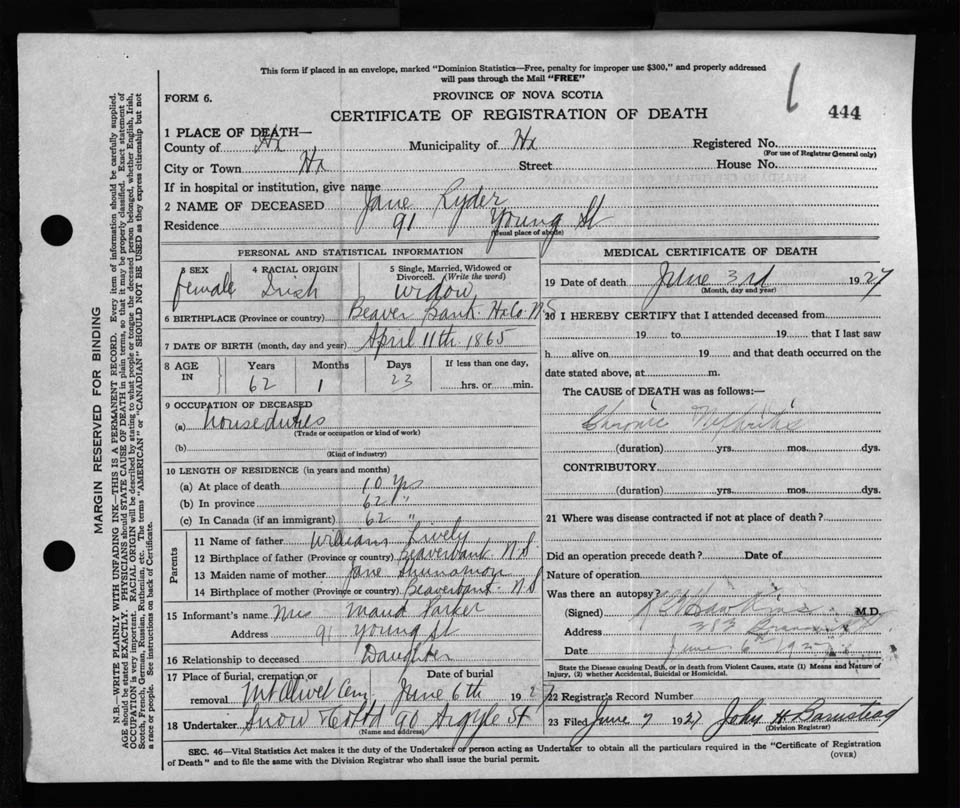 This form if placed in an envelope, marked "Dominion Statistics—Free, penalty for improper use $300," and properly addressed
will pass through the Mail "FREE"
FORM 6.
PROVINCE OF NOVA SCOTIA
CERTIFICATE OF REGISTRATION OF DEATH
444
1 PLACE OF DEATH—
County of Hx Municipality of Hx Registered No.
(For use of Registrar General only)
City or Town Hx Street House No.
If in hospital or institution, give name
2 NAME OF DECEASED Jane Ryder
Residence 91 Young St
(Usual place of abode)
PERSONAL AND STATISTICAL INFORMATION
3 SEX 4 RACIAL ORIGIN 5 Single, Married, Widowed or Divorced. (Write the word)
female Irish Widow
6 BIRTHPLACE (Province or country) Beaver Bank Hx Co. N S
7 DATE OF BIRTH (month, day and year) April 11th 1865
8 AGE IN Years Months Days If less than one day,
62 1 23 hrs. or min.
9 OCCUPATION OF DECEASED
(a) houseduties
(Trade or occupation or kind of work)
(b)
(Kind of industry)
10 LENGTH OF RESIDENCE (in years and months)
(a) At place of death 10 Yrs
(b) In province 62 "
(c) In Canada (if an immigrant) 62 "
Parents
11 Name of father William Lively
12 Birthplace of father (Province or country) Beaverbank N.S.
13 Maiden name of mother Jane
14 Birthplace of mother (Province or country) Beaverbank N S
15 Informant's name Mrs Maud Parker
Address 91 Young St
16 Relationship to deceased Daughter
17 Place of burial, cremation or removal Date of burial
Mt Olivet Cem. June 6th 1927
18 Undertaker Snow & Co Ltd 90 Argyle St
(Name and address)
MEDICAL CERTIFICATE OF DEATH
19 Date of death June 3rd 1927
(Month, day and year)
20 I HEREBY CERTIFY that I attended deceased from
19 to 19 that I last saw
h alive on 19 and that death occurred on the
date stated above, at m.
The CAUSE of DEATH was as follows:—
Chronic Nephritis
(duration) yrs. mos. dys.
CONTRIBUTORY
(duration) yrs. mos. dys.
21 Where was disease contracted if not at place of death?
Did an operation precede death? Date of
Nature of operation
Was there an autopsy?
(Signed) M.D.
Address 383
Date June 6 192
State the Disease causing Death, or in death from Violent Causes, state (1) Means and Nature of
Injury, (2) whether Accidental, Suicidal or Homicidal.
22 Registrar's Record Number
23 Filed June 7 1927 John H Barnstead
(Division Registrar)
SEC. 46—Vital Statistics Act makes it the duty of the Undertaker or person acting as Undertaker to obtain all the particulars required in the "Certificate of Registration
of Death" and to file the same with the Division Registrar who shall issue the burial permit.
(OVER)
MARGIN RESERVED FOR BINDING
N.B.—WRITE PLAINLY WITH UNFADING INK—THIS IS A PERMANENT RECORD. Every item of information should be carefully supplied.
AGE should be stated EXACTLY. PHYSICIANS should STATE CAUSE OF DEATH in plain terms, so that it may be properly classified. Exact statement of
OCCUPATION is very important. RACIAL ORIGIN will be described by stating to what people or tongue the deceased person belonged, whether English, Irish,
Scotch, French, German, Russian, Ruthenian, etc. The terms "AMERICAN" or "CANADIAN" SHOULD NOT BE USED as they express citizenship but not
a race or people. See instructions on back of Certificate.